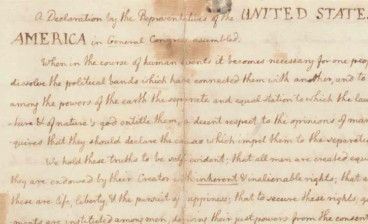 A Declaration by the Representatives of the UNITED STATES
AMERICA in General Congress assembled.
When in the course of human events it becomes necessary for one peop
dissolve the political bands which have connected them with another, and to
among the powers of the earth the separate and equal station to which the law
ture & of nature's god entitle them, a decent respect to the opinions of man
quires that they should declare the causes which impel them to the separatio
We hold these truths to be self evident; that all men are created equal
they are endowed by their Creator with inherent & inalienable rights; that a
these are life, liberty, & the pursuit of happiness; that to secure these rights, g
ments are instituted among men, deriving their just powers from the consent